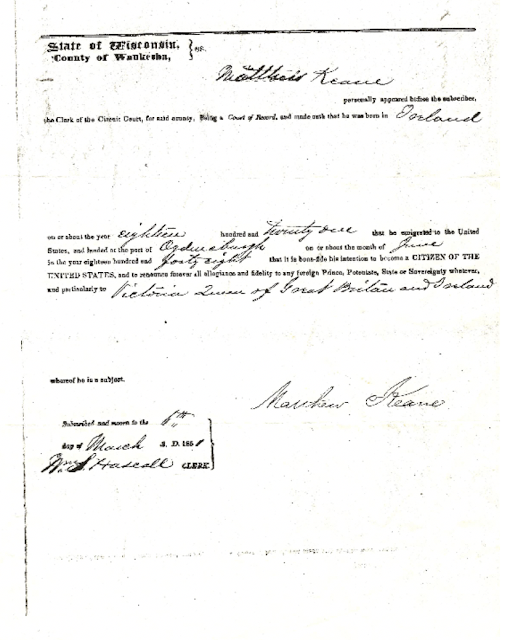 State of Wisconsin, } ss.
County of Waukesha,
Matthew Keane
personally appeared before the subscriber,
the Clerk of the Circuit Court, for said county, being a Court of Record, and made oath that he was born in Ireland
on or about the year eighteen hundred and twenty one that he emigrated to the United
States, and landed at the port of Ogdensburgh on or about the month of June
in the year eighteen hundred and forty eight that it is bona-fide his intention to become a CITIZEN OF THE
UNITED STATES, and to renounce forever all allegiance and fidelity to any foreign Prince, Potentate, State or Sovereignty whatever,
and particularly to Victoria Queen of Great Britain and Ireland
whereof he is a subject.
Matthew Keane
Subscribed and sworn to the 6th
day of March A. D. 185
Wm S. Hascall CLERK.